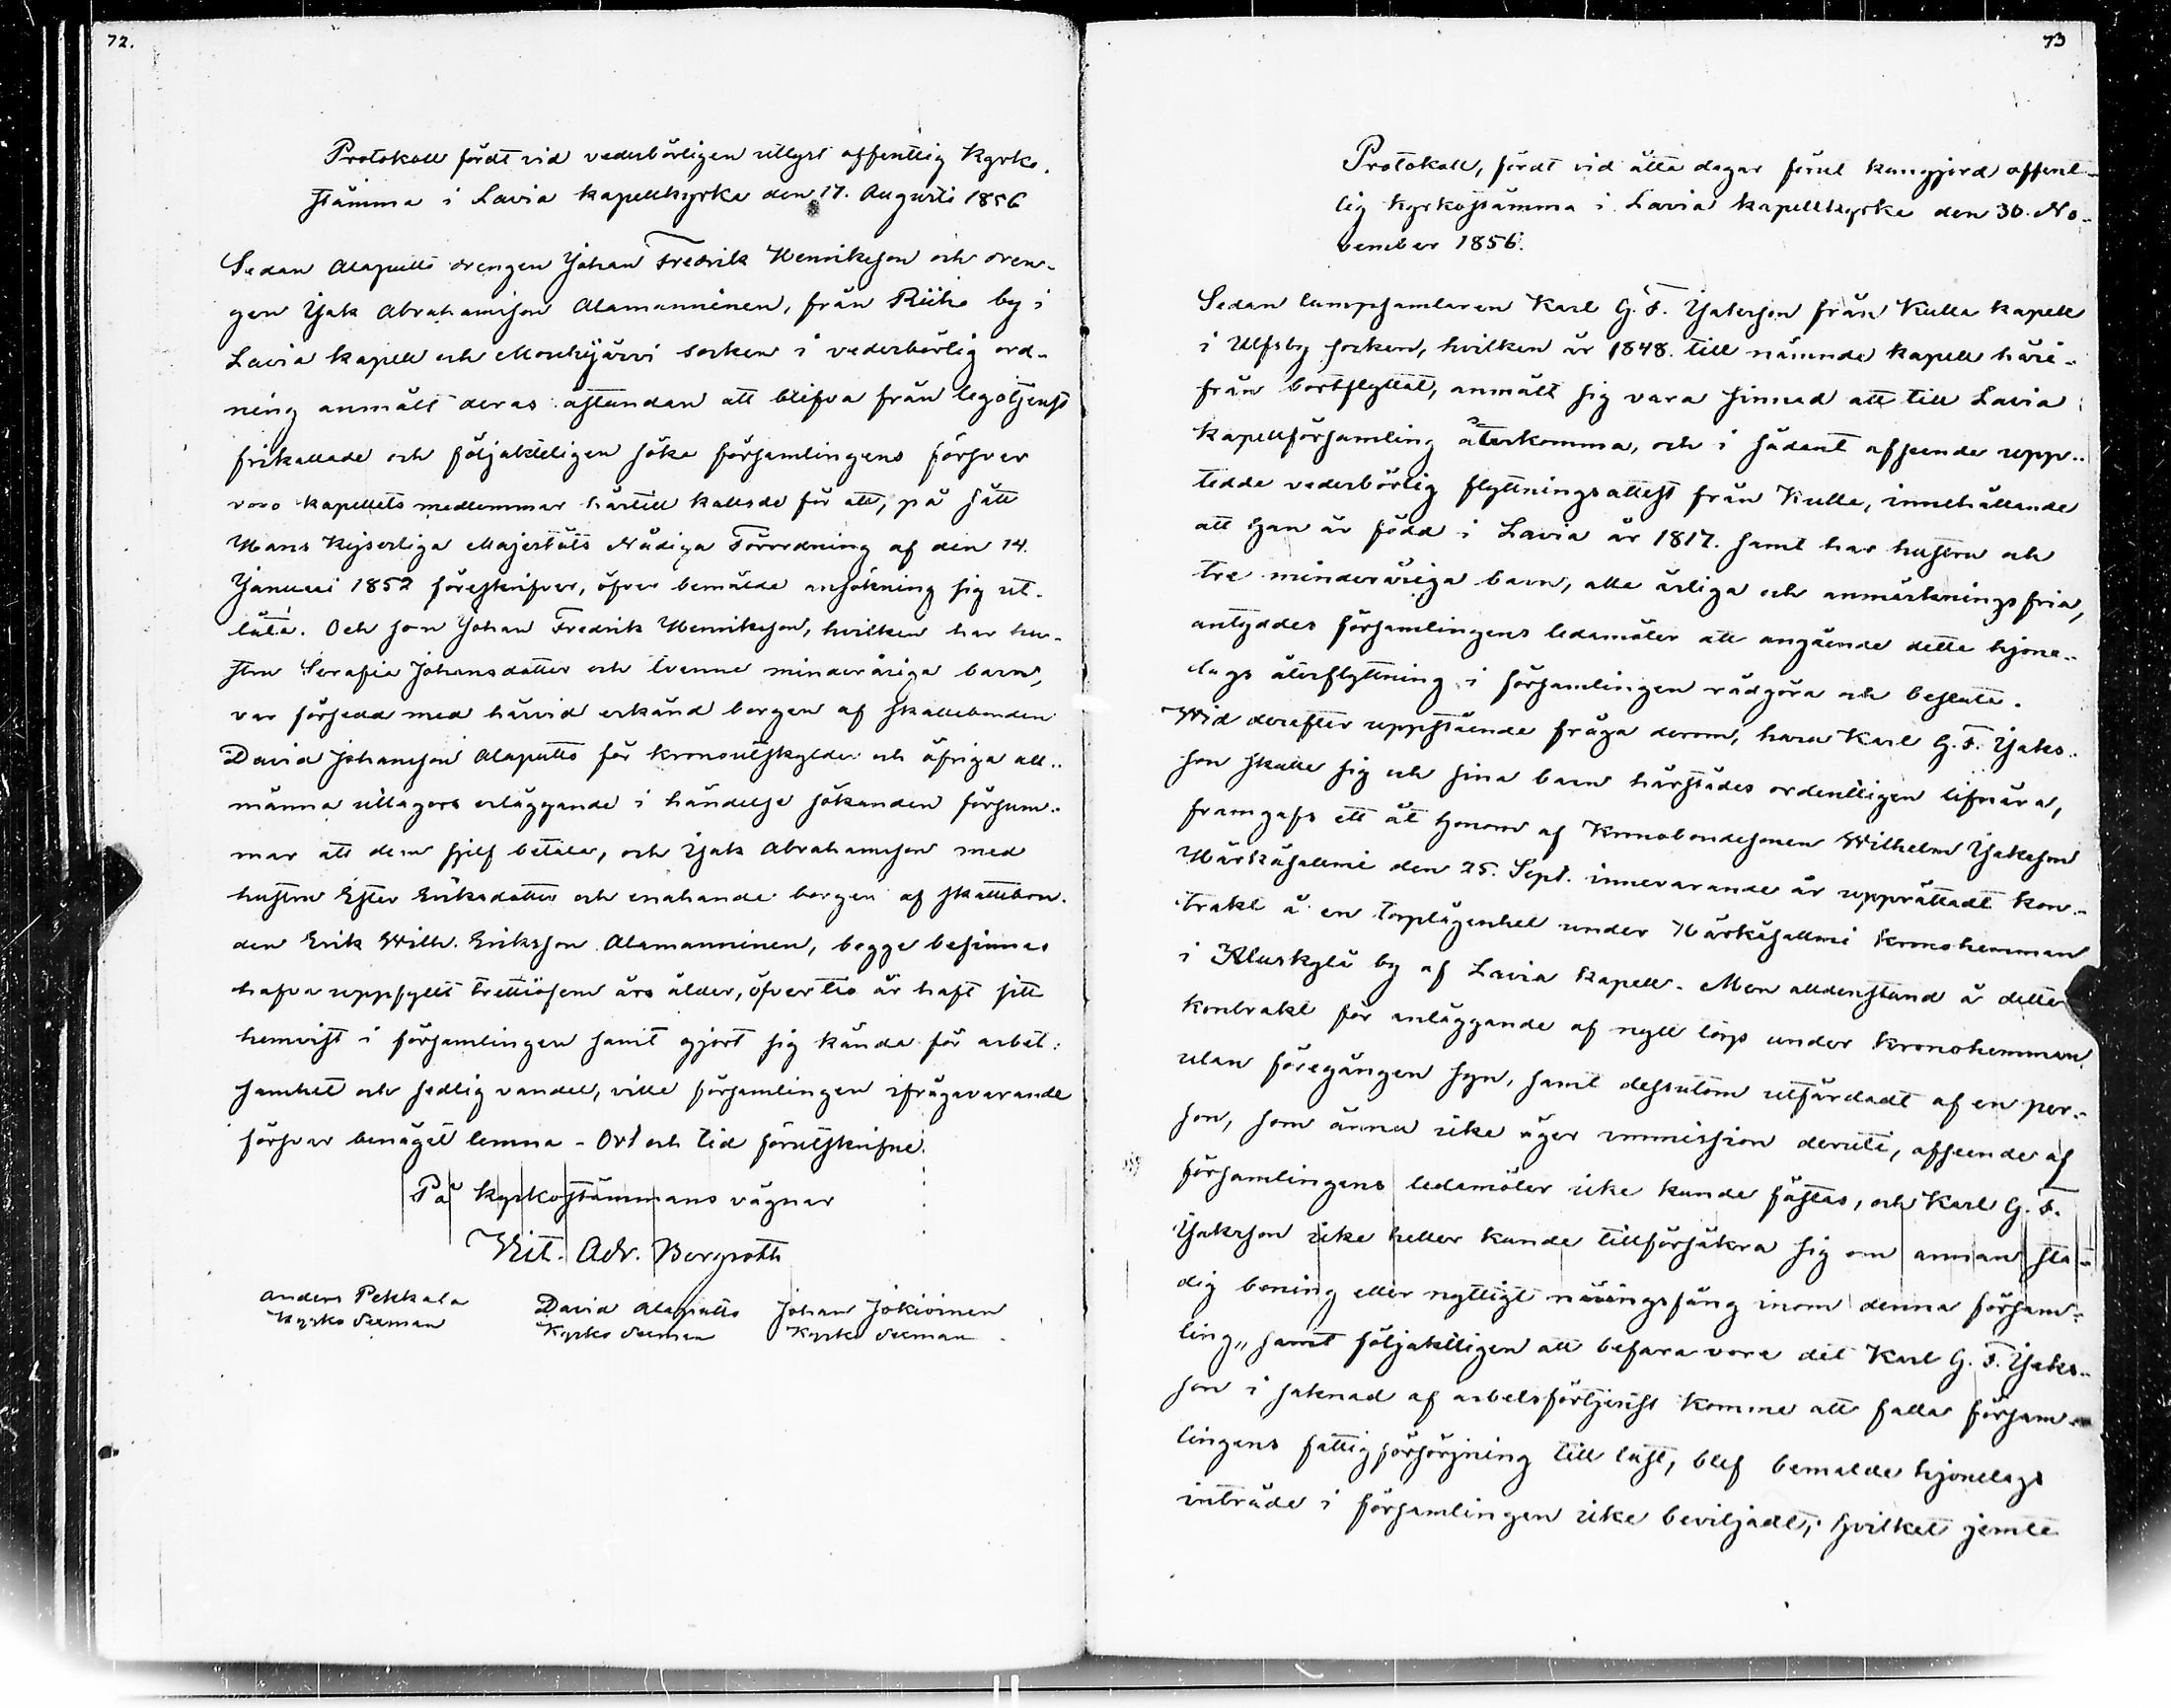 72.
Protokoll fördt vid vederbörligen utlyst offentlig Kyrko-
stämma i Lavia kapellkyrka den 17. Augusti 1856
Sedan Alaputto drengen Johan Fredrik Henriksson och dren-
gen Isak Abrahamsson Alamanninen, från Riiho by i
Lavia kapell och Mouhijärvi socken i vederbörlig ord-
ning anmält deras åstundan att blifva från legotjenst
frikallade och följaktligen söka församlingens försvar
voro kapellets medlemmar härtill kallade för att, på sätt
Hans Kejserliga Majestäts Nådiga Förordning af den 14.
Januari 1852 föreskrifver, öfver bemälde ansökning sig ut-
låta. Och som Johan Fredrik Henriksson, hvilken har hu-
stru Serafia Johansdotter och tvenne minderåriga barn,
var försedd med härvid erkänd borgen af skattebonden
David Johansson Alaputto för kronoutskylder och öfriga all-
männa utlagors erläggande i händelse sökanden försum-
mar att dem sjelf betala, och Isak Abrahamsson med
hustru Ester Eriksdotter och enahanda borgen af skattebon-
den Erik Wilh. Eriksson Alamanninen, begge befinnas
hafva uppfyllt trettiofem års ålder, öfver tio år haft sitt
hemvist i församlingen samt gjort sig kända för arbet-
samhet och sedlig vandel, ville församlingen ifrågavarande
försvar benäget lemna - Ort och tid förutskrifne.
På kyrkostämmans vägnar
Vit. Adr. Bergroth
Anders Pekkala David Alaputto Johan Jokioinen
Kyrko Sexman Kyrko Sexman Kyrko Sexman
73
Protokoll, fördt vid åtta dagar förut kungjord offent-
lig kyrkostämma i Lavia kapellkyrka den 30. No-
vember 1856.
Sedan lumpsamlaren Karl G. F. Isaksson från Kulla kapell
i Ulfsby socken, hvilken år 1848. till nämnde kapell häri-
från bortflyttat, anmält sig vara sinnad att till Lavia
kapellförsamling återkomma, och i sådant afseende upp-
tedde vederbörlig flyttningsattest från Kulla, innehållande
att han är född i Lavia år 1817. samt har hustru och
tre minderåriga barn, alla ärliga och anmärkningsfria,
antyddes församlingens ledamöter att angående detta hjone-
lags återflyttning i församlingen rådgöra och besluta.
Wid derefter uppstående fråga derom, huru Karl G. F. Isaks-
son skulle sig och sina barn härstädes ordentligen lifnära,
framgafs ett åt honom af Kronobondesonen Wilhelm Isaksson
Härkäsalmi den 25. Sept. innevarande år upprättadt kon-
trakt å en torplägenhet under Härkäsalmi kronohemman
i Kluskylä by af Lavia kapell. Men alldenstund å detta
kontrakt för anläggande af nytt torp under kronohemman,
utan föregången syn, samt dessutom utfärdadt af en per-
son, som ännu icke äger immission deruti, afseende af
församlingens ledamöter icke kunde fästas, och Karl G. F.
Isaksson icke heller kunde tillförsäkra sig om annan sta-
dig boning eller nyttigt näringsfång inom denna försam-
ling,, samt följaktligen att befara vore det Karl G. F. Isaks-
son i saknad af arbetsförtjenst komme att falla försam-
lingens fattigförsörjning till last, blef bemälde hjonelags
inträde i församlingen icke beviljadt, hvilket jemte